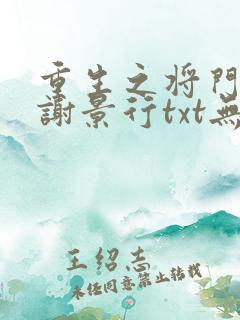 重生之将門
謝景行txt無
王绍志
未经同意禁止转载